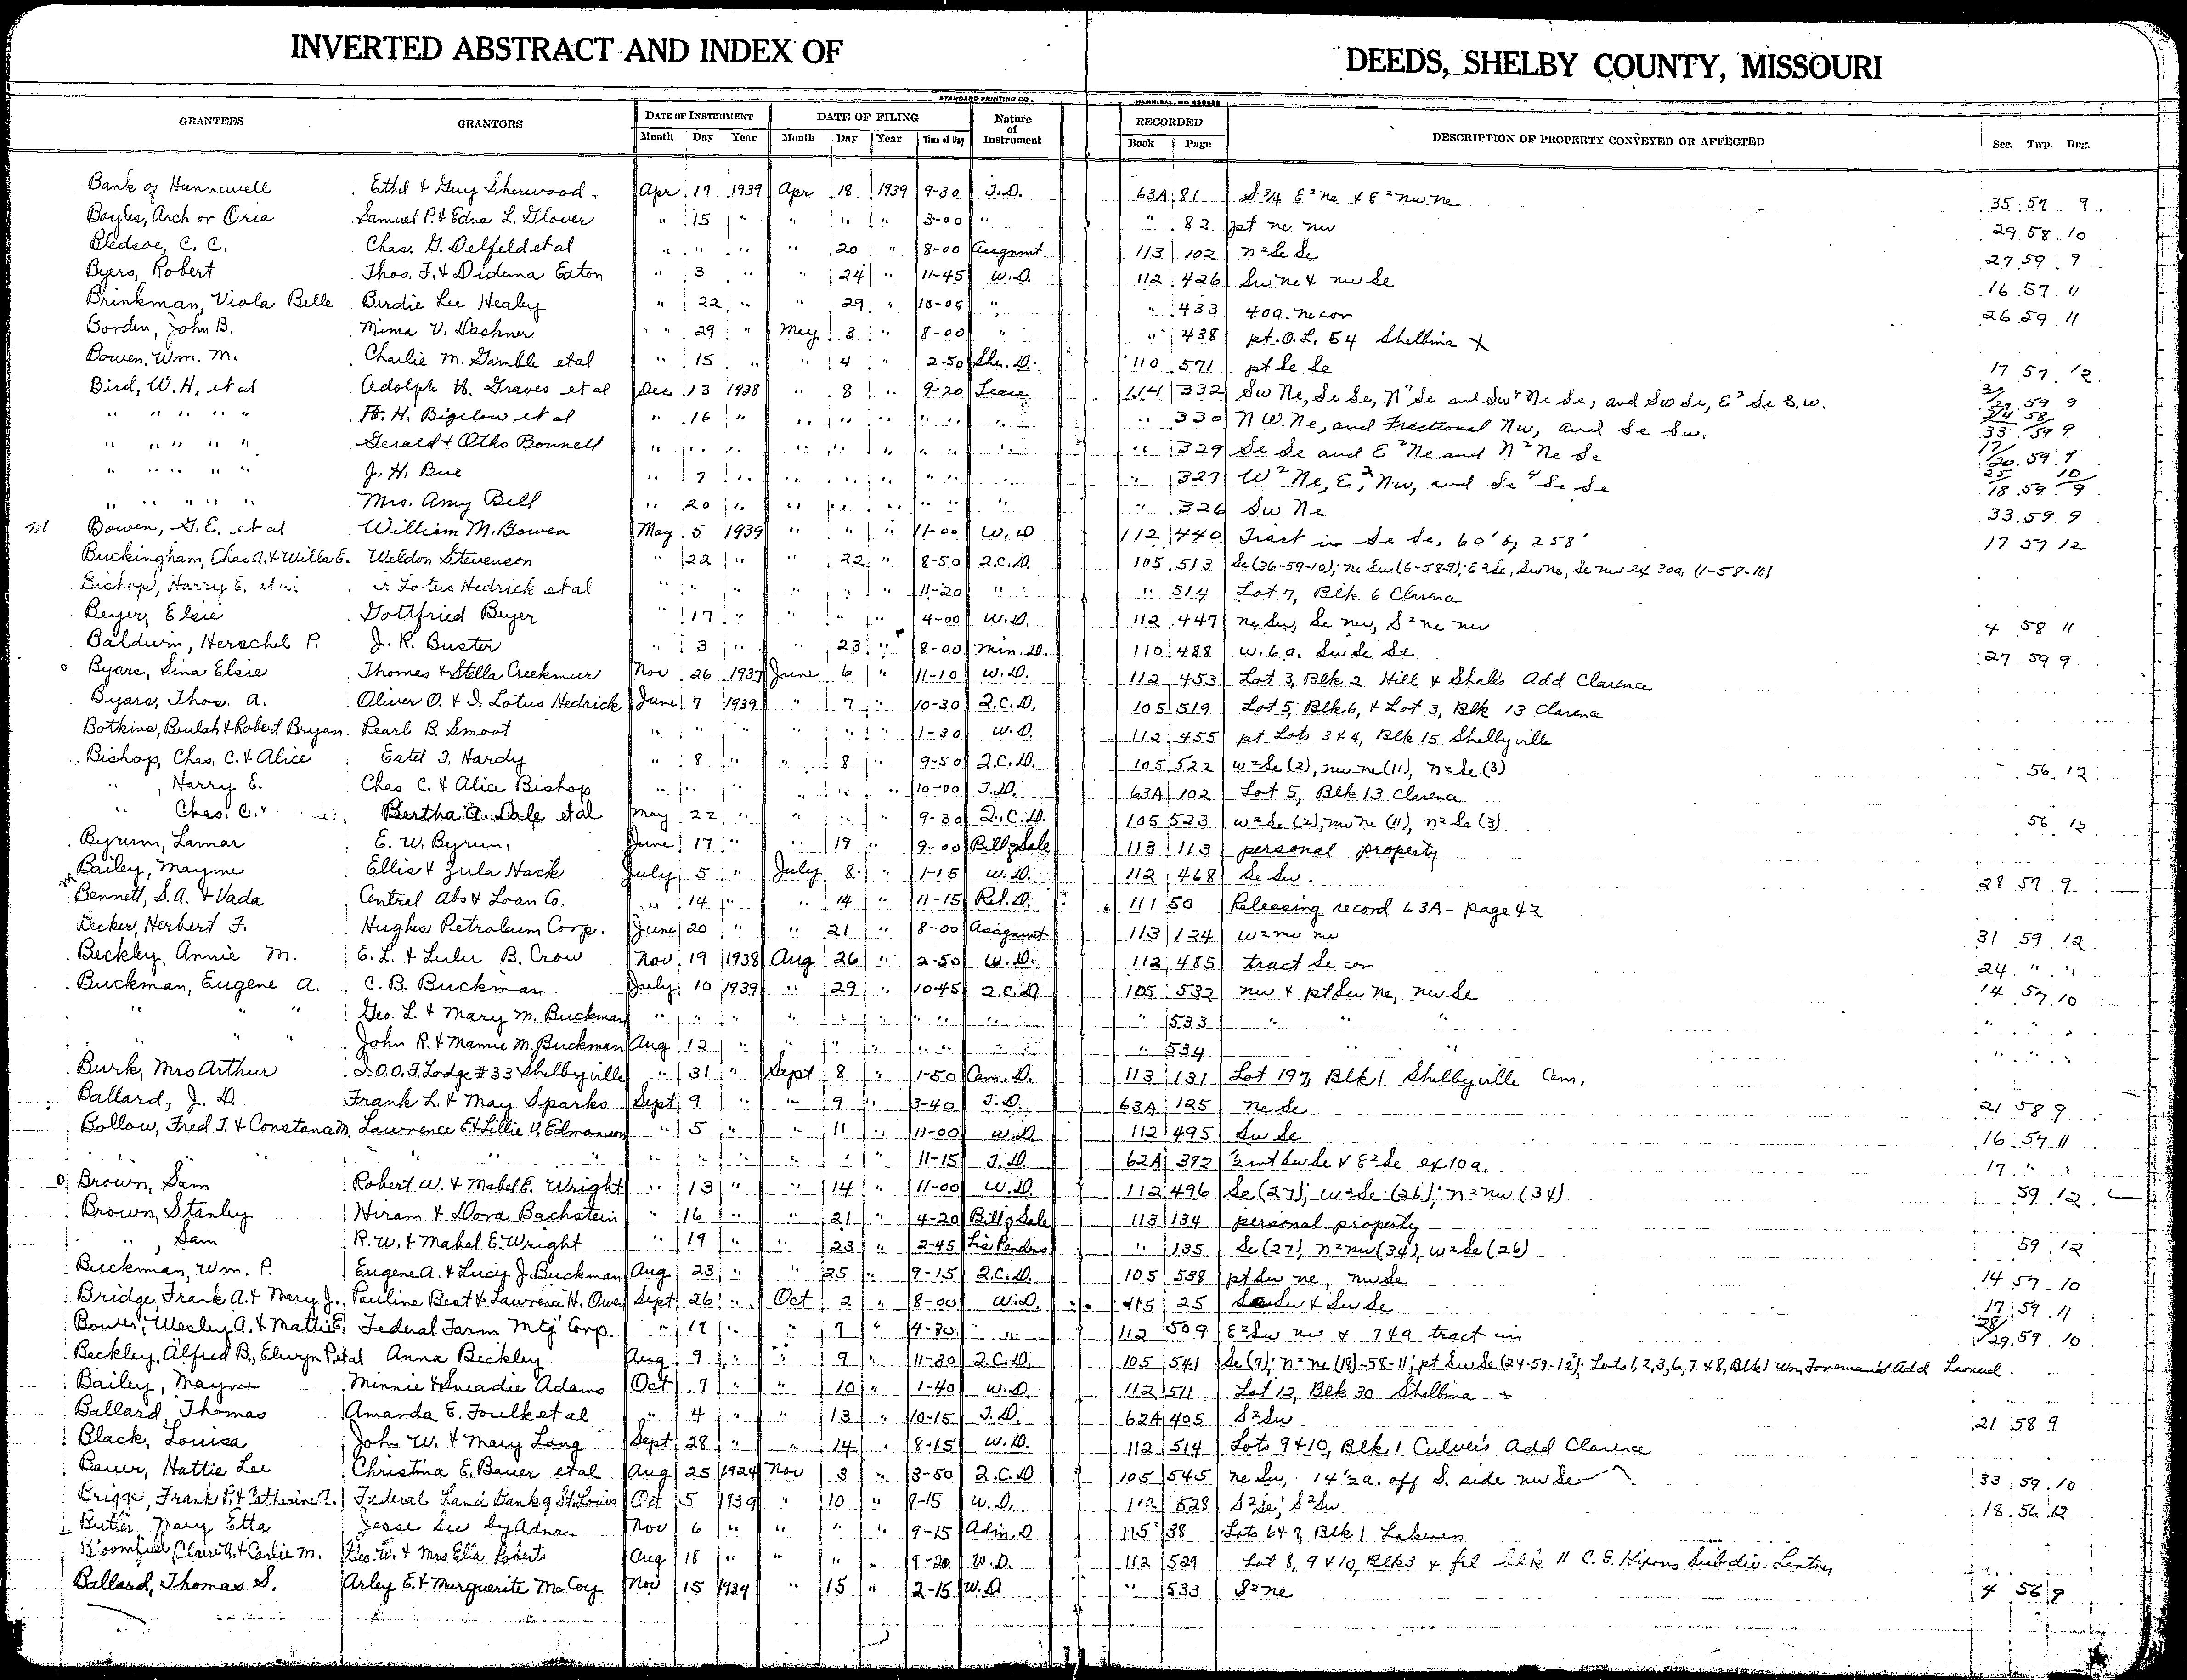 INVERTED ABSTRACT AND INDEX OF DEEDS, SHELBY COUNTY, MISSOURI
STANDARD PRINTING CO. HANNIBAL, MO
GRANTEES GRANTORS DATE OF INSTRUMENT DATE OF FILING Nature of Instrument RECORDED DESCRIPTION OF PROPERTY CONVEYED OR AFFECTED Sec. Twp. Rng.
Month Day Year Month Day Year Time of Day Book Page
Bank of Hunnewell Ethel & Guy Sherwood Apr 17 1939 Apr 18 1939 9-30 T.D. 63A 81 S 3/4 E² ne & E² nw ne 35 57 9
Boyles, Arch or Oria Samuel P. & Edna L. Glover " 15 " " " " 3-00 " " 82 pt ne nw 29 58 10
Bledsoe, C. C. Chas. G. Delfeld et al " " " " 20 " 8-00 Assgnmt 113 102 n² Se Se 27 59 9
Byers, Robert Thos. F. & Didema Eaton " 3 " " 24 " 11-45 W.D. 112 426 Sw ne & nw Se 16 57 11
Brinkman, Viola Belle Birdie Lee Healey " 22 " " 29 " 10-05 " " 433 40a. ne cor 26 59 11
Borden, John B. Mima V. Dashner " 29 " May 3 " 8-00 " " 438 pt. O.L. 54 Shelbina X
Bowen, Wm. M. Charlie M. Gamble et al " 15 " " 4 " 2-50 She. D. 110 571 pt Se Se 17 57 12
Bird, W. H. et al Adolph H. Graves et al Dec 13 1938 " 8 " 9-20 Lease 114 332 Sw Ne, Se Se, N² Se and Sw⁴ Ne Se, and Sw Se, E² Se S.w. 59 9
" " " " " H. H. Bigelow et al " 16 " " " " " " " " 330 N W. Ne, and Fractional Nw, and Se Sw. 33 59 9
" " " " " Gerald & Otho Bonnell " " " " " " " " " " 329 Se Se and E² Ne and N² Ne Se 17/20 59 9
" " " " " J. H. Bue " 7 " " " " " " " " 327 W² Ne, E² Nw, and Se⁴ Se Se 25 10/18 59 9
" " " " " Mrs. Amy Bell " 20 " " " " " " " " 326 Sw Ne 33 59 9
Bowen, G. E. et al William M. Bowen May 5 1939 " " " 11-00 W. D 112 440 Tract in Se Se, 60' by 258' 17 57 12
Buckingham, Chas A. & Willa E. Weldon Stevenson " 22 " " 22 " 8-50 Q.C.D. 105 513 Se (36-59-10); ne Sw (6-58-9); E² Se, Sw ne, Se nw ex 30a (1-58-10)
Bishop, Harry E. et al I. Lotus Hedrick et al " " " " " " 11-20 " " 514 Lot 7, Blk 6 Clarence
Beyer, Elsie Gottfried Beyer " 17 " " " " 4-00 W.D. 112 447 ne Sw, Se nw, S² ne nw 4 58 11
Baldwin, Herschel P. J. R. Buster " 3 " " 23 " 8-00 Min. D. 110 488 w. 6 a. Sw Se Se 27 59 9
Byars, Sina Elsie Thomas & Stella Creekmur Nov 26 1937 June 6 " 11-10 W.D. 112 453 Lot 3, Blk 2 Hill & Shale's Add Clarence
Byars, Thos. A. Oliver O. & I. Lotus Hedrick June 7 1939 " 7 " 10-30 Q.C.D. 105 519 Lot 5, Blk 6, & Lot 3, Blk 13 Clarence
Botkins, Beulah & Robert Bryan Pearl B. Smoot " " " " " " 1-30 W.D. 112 455 pt Lots 3 & 4, Blk 15 Shelbyville
Bishop, Chas. C. & Alice Estel I. Hardy " 8 " " 8 " 9-50 Q.C.D. 105 522 w² Se (2), nw ne (11), n² Se (3) 56 12
" , Harry E. Chas C. & Alice Bishop " " " " " " 10-00 T.D. 63A 102 Lot 5, Blk 13 Clarence
" Chas. C. & Bertha A. Dale et al May 22 " " " " 9-30 Q.C.D. 105 523 w² Se (2), nw ne (11), n² Se (3) 56 12
Byrum, Lamar E. W. Byrum June 17 " " 19 " 9-00 Bill of Sale 113 113 personal property
Bailey, Mayme Ellis & Zula Hack July 5 " July 8 " 1-15 W.D. 112 468 Se Sw 28 57 9
Bennett, S. A. & Vada Central Abs & Loan Co. " 14 " " 14 " 11-15 Rel. D. 111 50 Releasing record 63A - page 42
Becker, Herbert F. Hughes Petroleum Corp. June 20 " " 21 " 8-00 Assgnmt 113 124 w² nw nw 31 59 12
Beckley, Annie M. E. L. & Lulu B. Crow Nov 19 1938 Aug 26 " 2-50 W.D. 112 485 tract Se cor 24 " "
Buckman, Eugene A. C. B. Buckman July 10 1939 " 29 " 10-45 Q.C.D 105 532 nw & pt Sw ne, nw Se 14 57 10
" " " Geo. L. & Mary M. Buckman " " " " " " " " " " 533 " " " " " "
" " " John R. & Mamie M. Buckman Aug 12 " " " " " " " " 534 " " " " "
Burk, Mrs Arthur I.O.O.F. Lodge #33 Shelbyville " 31 " Sept 8 " 1-50 Cem. D. 113 131 Lot 197, Blk 1 Shelbyville Cem.
Ballard, J. D. Frank L. & May Sparks Sept 9 " " 9 " 3-40 T.D. 63A 125 ne Se 21 58 9
Bollow, Fred T. & Constana M. Lawrence E. & Lillie V. Edmonson " 5 " " 11 " 11-00 W.D. 112 495 Sw Se 16 57 11
" " " " " " " " " " " " 11-15 T.D. 62A 392 ½ int Sw Se & E² Se ex 10 a. 17 " "
Brown, Sam Robert W. & Mabel E. Wright " 13 " " 14 " 11-00 W.D. 112 496 Se (27); w² Se (26); n² nw (34) 59 12
Brown, Stanley Hiram & Dora Bachstein " 16 " " 21 " 4-20 Bill of Sale 113 134 personal property
" , Sam R. W. & Mabel E. Wright " 19 " " 23 " 2-45 Lis Pendens " 135 Se (27), n² nw (34), w² Se (26) 59 12
Buckman, Wm. P. Eugene A. & Lucy J. Buckman Aug 23 " " 25 " 9-15 Q.C.D. 105 538 pt Sw ne, nw Se 14 57 10
Bridge, Frank A. & Mary J. Pauline Best & Lawrence H. Owen Sept 26 " Oct 2 " 8-00 W.D. 115 25 Sw & Sw Se 17 59 11
Bower, Wesley A. & Mattie E. Federal Farm Mtg Corp. " 19 " " 7 " 4-30 " 112 509 E² Sw nw & 74a tract in 28/29 59 10
Beckley, Alfred B., Elwyn P. et al Anna Beckley Aug 9 " " 9 " 11-30 Q.C.D. 105 541 Se (7); n² ne (18)-58-11; pt Sw Se (24-59-12); Lots 1, 2, 3, 6, 7 & 8, Blk 1 Wm. Foreman's Add Leonard
Bailey, Mayme Minnie & Sneadie Adams Oct 7 " " 10 " 1-40 W.D. 112 511 Lot 12, Blk 30 Shelbina +
Ballard, Thomas Amanda E. Foulk et al " 4 " " 13 " 10-15 T.D. 62A 405 S² Sw 21 58 9
Black, Louisa John W. & Mary Long Sept 28 " " 14 " 8-15 W.D. 112 514 Lots 9 & 10, Blk 1 Culver's Add Clarence
Bauer, Hattie Lee Christina E. Bauer et al Aug 25 1924 Nov 3 " 3-50 Q.C.D 105 545 ne Sw, 14½ a. off S. side nw Se 33 59 10
Briggs, Frank P. & Catherine A. Federal Land Bank of St. Louis Oct 5 1939 " 10 " 8-15 W.D. 112 528 S² Se; S² Sw 18 56 12
Butler, Mary Etta Jesse See by Admr. Nov 6 " " " " 9-15 Adm. D 115 38 Lots 6 & 7, Blk 1 Lakenan
Bloomfield, Claire A. & Carlie M. Geo. W. & Mrs Ella Roberts Aug 18 " " " " 9-20 W.D. 112 529 Lot 8, 9 & 10, Blk 3 & fcl blk 11 C. E. Hixons Subdiv. Lentner
Ballard, Thomas S. Arley E. & Marguerite McCoy Nov 15 1939 " 15 " 2-15 W.D " 533 S² ne 4 56 9